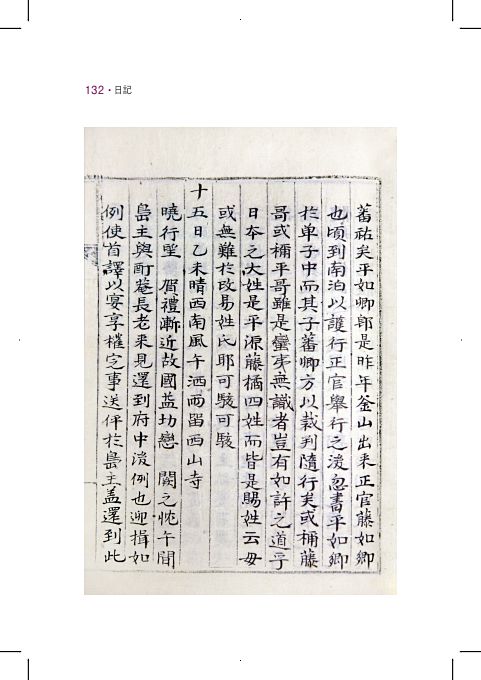 132 · 日記
蕃祐矣平如卿郎是昨年釜山出來正官藤如卿
也頃到南泊以護行正官舉行之後忽書平如卿
於单子中而其子蕃卿方以裁判隨行矣或稱藤
哥或稱平哥雖是蠻夷無識者豈有如許之道乎
日夲之大姓是平源藤橘四姓而皆是賜姓云毋
或無難於改易姓氏耶可駭可駭
十五日乙未晴西南風午洒雨留西山寺
曉行望 賀禮漸近故國益切戀 闕之忱午間
島主與酊菴長老來見還到府中後例也迎揖如
例使首譯以宴享權定事送伻於島主盖還到此